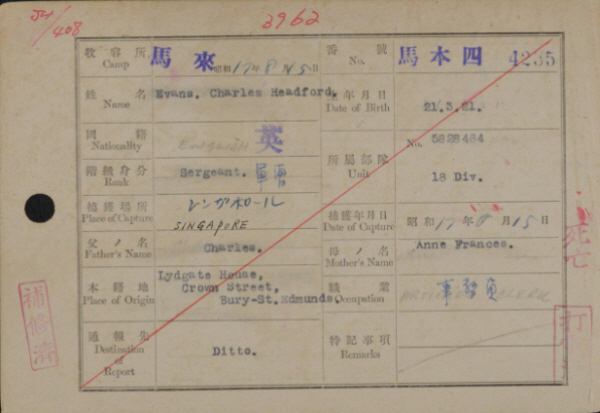 2962
408
收容所
Camp
馬來
昭和17年8月15日
番號
No.
馬本四 4235
姓名
Name
Evans. Charles Headford.
生年月日
Date of Birth
21.3.21.
國籍
Nationality
English 英
所屬部隊
Unit
No. 5828484
18 Div.
階級身分
Rank
Sergeant.
捕獲場所
Place of Capture
シンガポール
SINGAPORE
捕獲年月日
Date of Capture
昭和17年8月15日
父ノ名
Father's Name
Charles.
母ノ名
Mother's Name
Anne Frances.
本籍地
Place of Origin
Lydgate House,
Crown Street,
Bury-St.Edmunds.
職業
Occupation
CLERK
事務員
通報先
Destination of
Report
Ditto.
特記事項
Remarks
補修濟
死亡
打